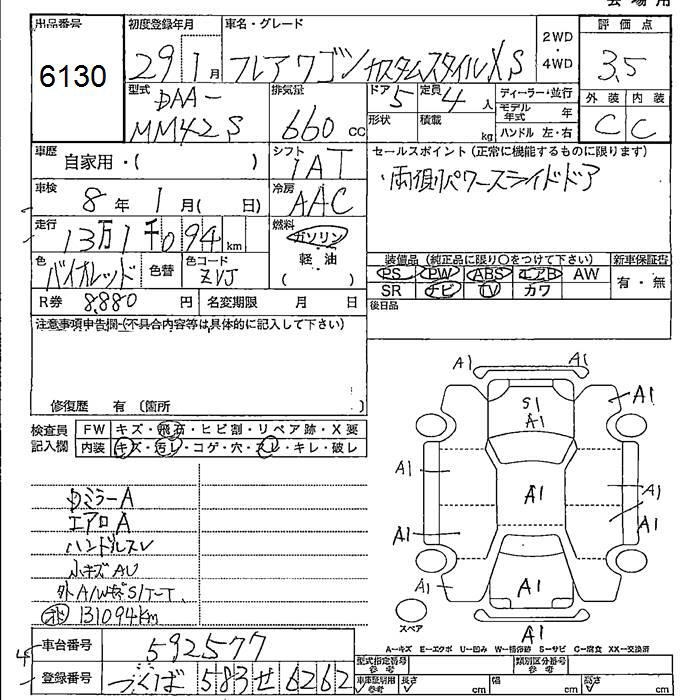 会場用
出品番号 初度登録年月 車名・グレード 2WD・4WD 評価点
6130 29 1月 フレアワゴン カスタムスタイルXS 3.5
型式 排気量 ドア 定員 ディーラー・並行 外装 内装
DAA-MM42S 660cc 5 4人 モデル年式 年 C C
形状 積載 kg ハンドル 左・右
車歴 自家用・( ) シフト IAT セールスポイント(正常に機能するものに限ります)
両側パワースライドドア
車検 8年 1月( 日) 冷房 AAC
走行 13万1千094km 燃料 ガソリン 軽油 ( )
装備品 (純正品に限り○をつけて下さい) 新車保証書
色 バイオレッド 色替 色コード ZVJ
PS PW ABS エアB AW 有・無
SR ナビ TV カワ
R券 8,880円 名変期限 月 日 後日品
注意事項申告欄(不具合内容等は具体的に記入して下さい)
修復歴 有 (箇所 )
検査員記入欄 FW キズ・飛石・ヒビ割・リペア跡・X要
内装 キズ・汚レ・コゲ・穴・スレ・キレ・破レ
ミラーA
エアロA
ハンドルスレ
小キズAU
外A/WキズS1T-T
131094km
A1 A1
S1 A1 A1
A1 A1 A1
A1 A1
A1 A1
スペア A1
A-キズ E-エクボ U-凹み W-補修跡 S-サビ C-腐食 XX-交換済
車台番号 592577
登録番号 つくば 583 せ 6262
型式指定番号 参考 類別区分番号 参考
車庫証明用 参考 長さ cm 幅 cm 高さ cm